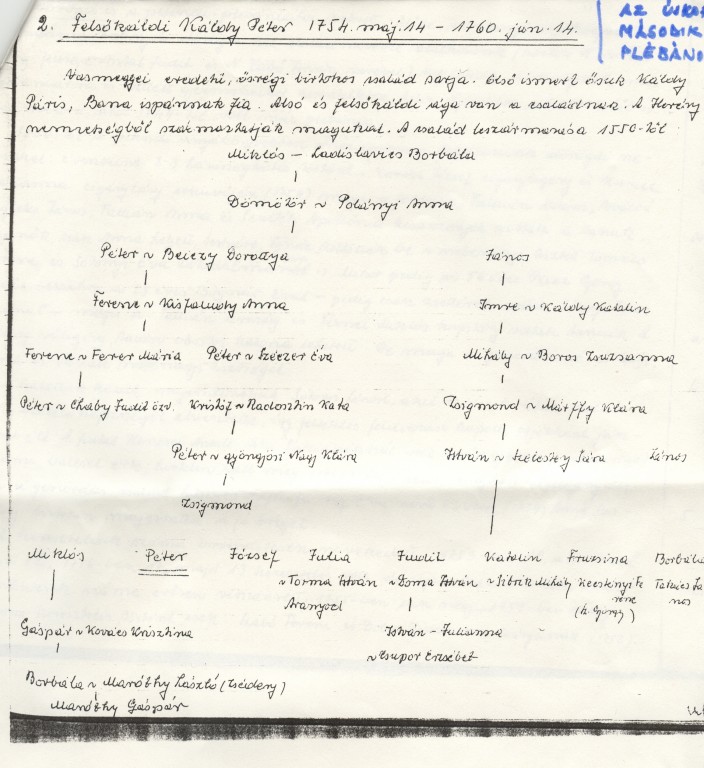 2. Felsőkáldi Káldy Péter 1754. máj. 14 - 1760. jún. 14.
AZ ÚJKOR
MÁSODIK
PLÉBÁNO
Vasmegyei eredetű, ősrégi birtokos család sarja. Első ismert ősük Káldy
Páris, Bana ispánnak fia. Alsó és felsőkáldi ága van a családnak. A Herény
nemzetségből származtatják magukat. A család leszármazása 1550-től:
Miklós - Ladislavics Borbála
Dömötör ~ Polányi Anna
Péter ~ Beiczy Dorottya János
Ferenc ~ Kisfaludy Anna Imre ~ Káldy Katalin
Ferenc ~ Ferer Mária Péter ~ Éva Mihály ~ Boros Zsuzsanna
Péter ~ Chaby Judit özv. Kristóf ~ Kata Zsigmond ~ Klára
Péter ~ gyöngyösi Nagy Klára István ~ Szelestey Sára János
Zsigmond
Miklós Péter József Julia Judit Katalin Fruzsina Borbála
~ Torma István ~ Doma István ~ Sitrik Mihály Kecskényi Fe Takács Já
renc nos
Aranyod (h. György)
Gáspár ~ Kovács Krisztina István - Julianna
~ Csupor Erzsébet
Borbála ~ Maróthy László (Csédeny)
Maróthy Gáspár